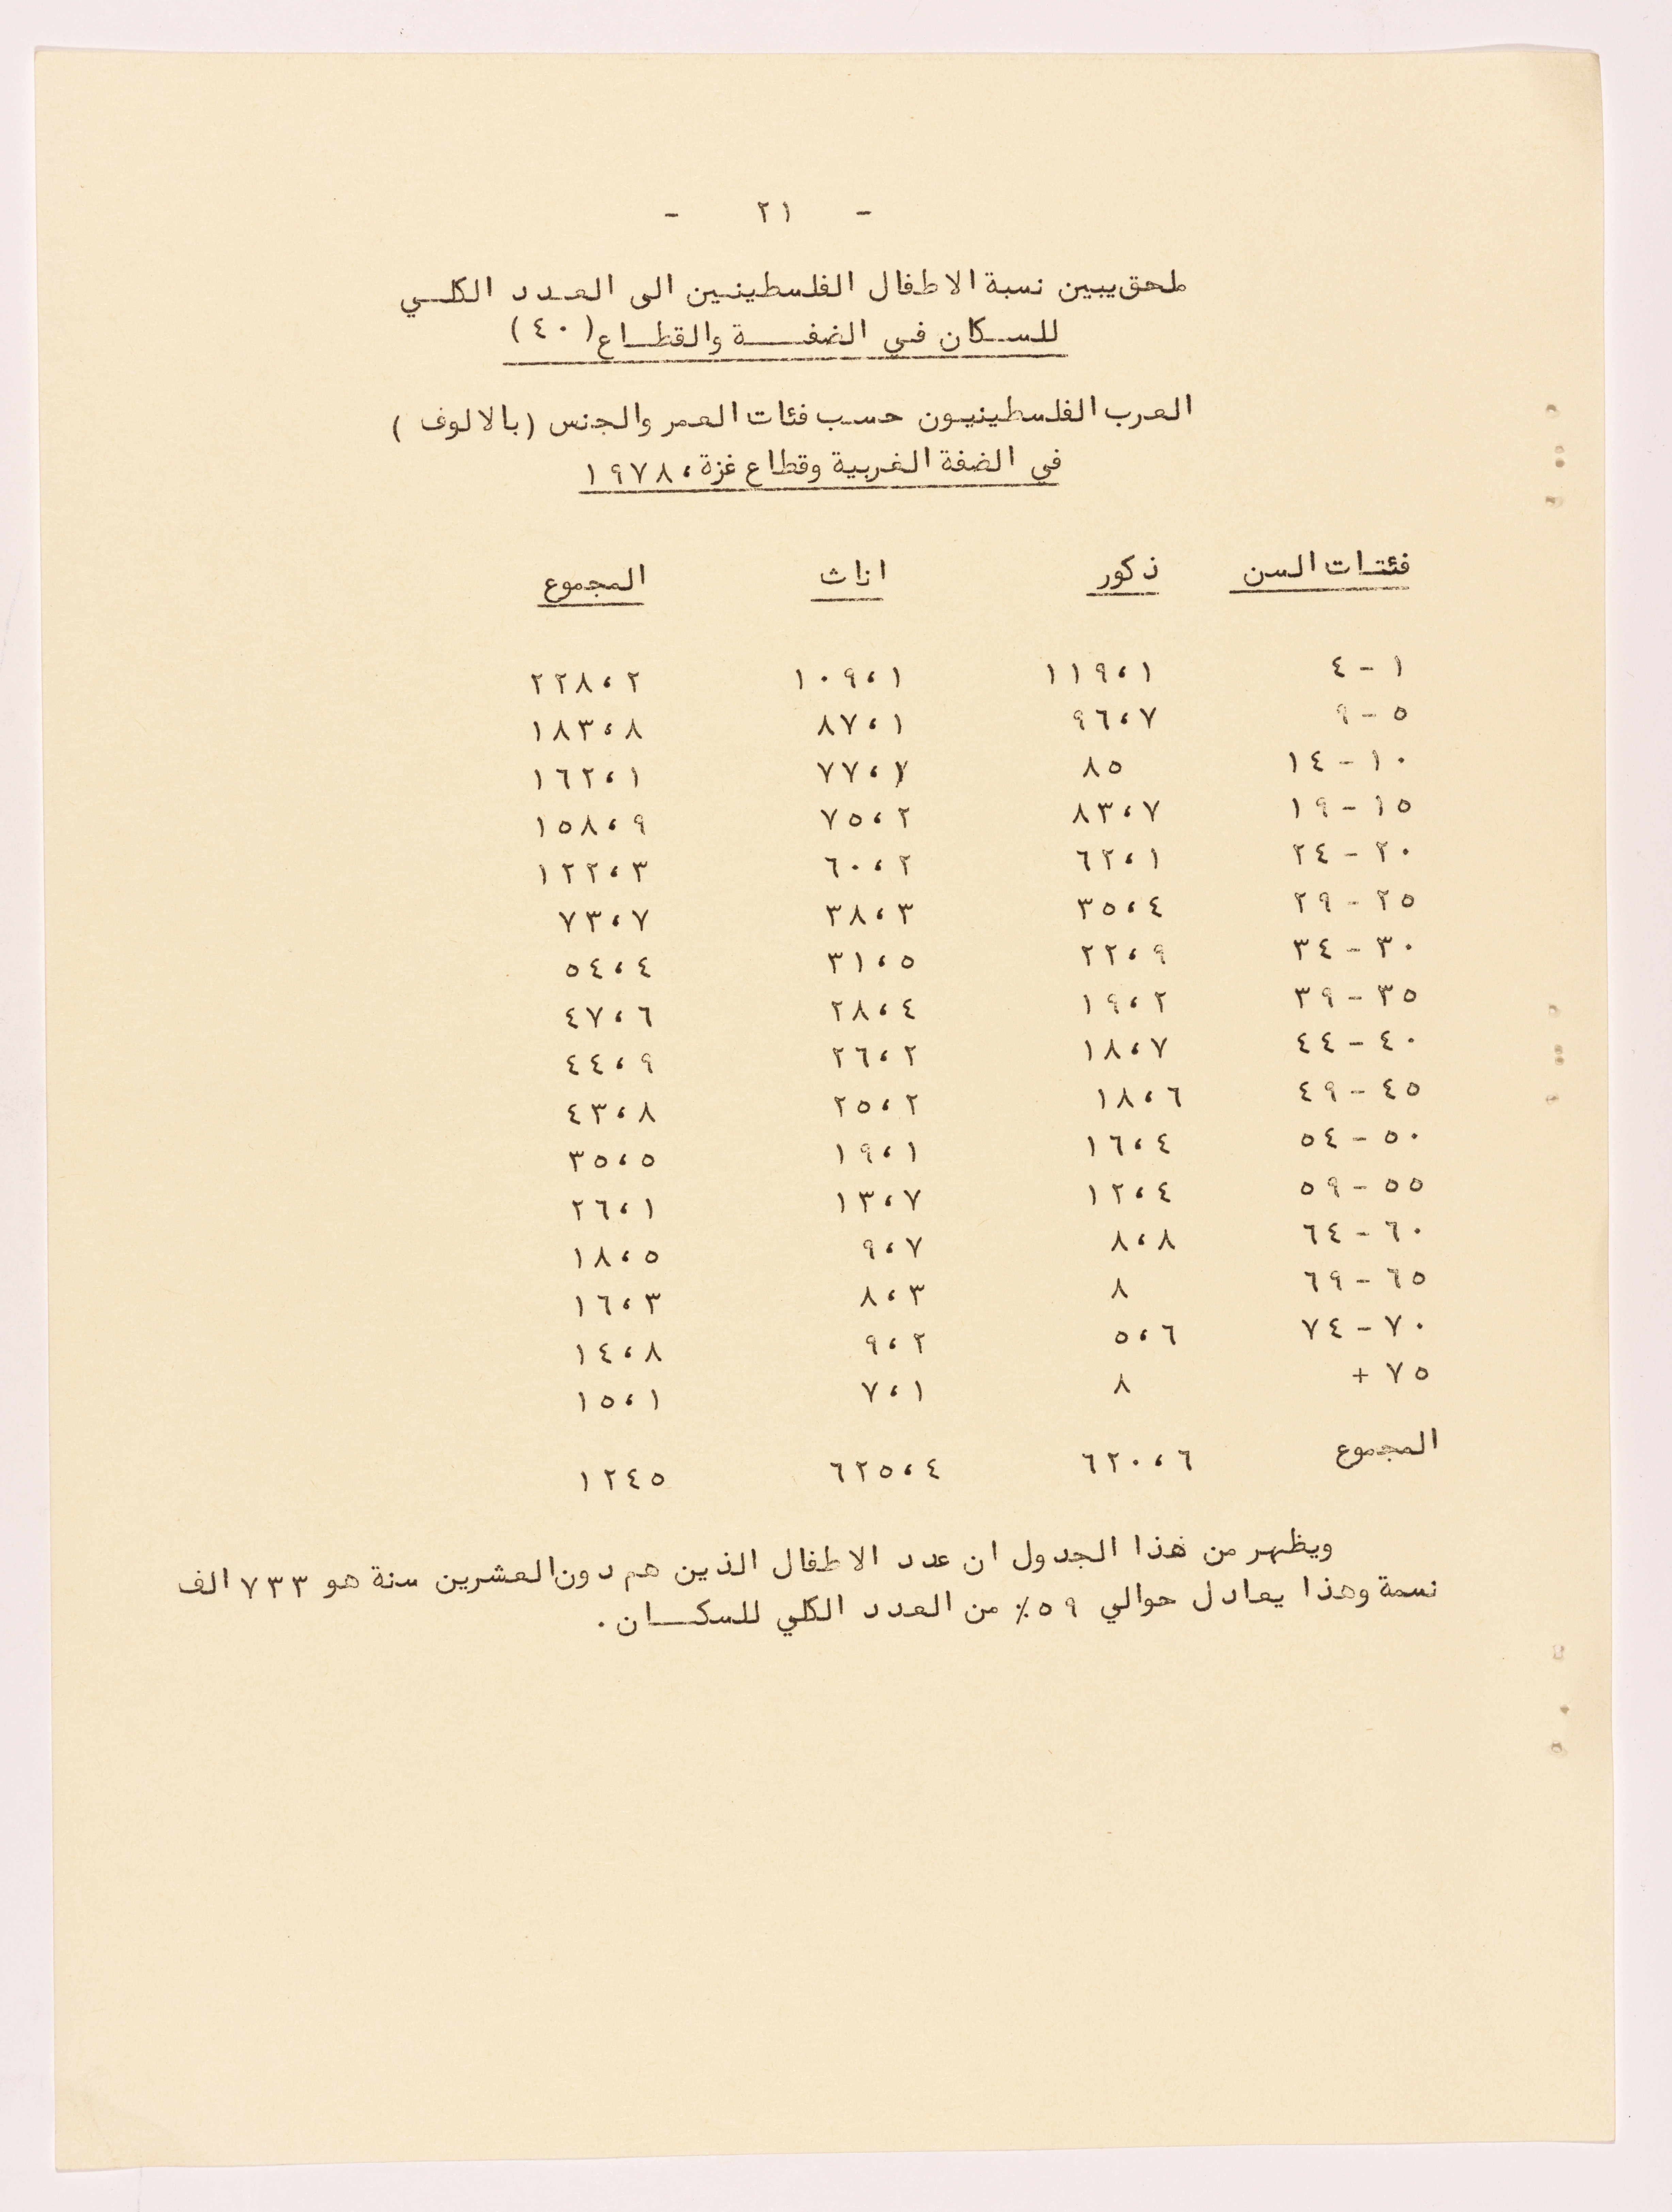 - ٢١ -
ملحق يبين نسبة الاطفال الفلسطينين الى العدد الكلي
للسكان في الضفة والقطاع (٤٠)
العرب الفلسطينيون حسب فئات العمر والجنس (بالالوف)
في الضفة الغربية وقطاع غزة، ١٩٧٨
فئتات السن ذكور اناث المجموع
١ - ٤ ١١٩،١ ١٠٩،١ ٢٢٨،٢
٥ - ٩ ٩٦،٧ ٨٧،١ ١٨٣،٨
١٠ - ١٤ ٨٥ ٧٧،١ ١٦٢،١
١٥ - ١٩ ٨٣،٧ ٧٥،٢ ١٥٨،٩
٢٠ - ٢٤ ٦٢،١ ٦٠،٢ ١٢٢،٣
٢٥ - ٢٩ ٣٥،٤ ٣٨،٣ ٧٣،٧
٣٠ - ٣٤ ٢٢،٩ ٣١،٥ ٥٤،٤
٣٥ - ٣٩ ١٩،٢ ٢٨،٤ ٤٧،٦
٤٠ - ٤٤ ١٨،٧ ٢٦،٢ ٤٤،٩
٤٥ - ٤٩ ١٨،٦ ٢٥،٢ ٤٣،٨
٥٠ - ٥٤ ١٦،٤ ١٩،١ ٣٥،٥
٥٥ - ٥٩ ١٢،٤ ١٣،٧ ٢٦،١
٦٠ - ٦٤ ٨،٨ ٩،٧ ١٨،٥
٦٥ - ٦٩ ٨ ٨،٣ ١٦،٣
٧٠ - ٧٤ ٥،٦ ٩،٢ ١٤،٨
٧٥ + ٨ ٧،١ ١٥،١
المجموع ٦٢٠،٦ ٦٢٥،٤ ١٢٤٥
ويظهر من هذا الجدول ان عدد الاطفال الذين هم دون العشرين سنة هو ٧٣٣ الف
نسمة وهذا يعادل حوالي ٥٩٪ من العدد الكلي للسكان .